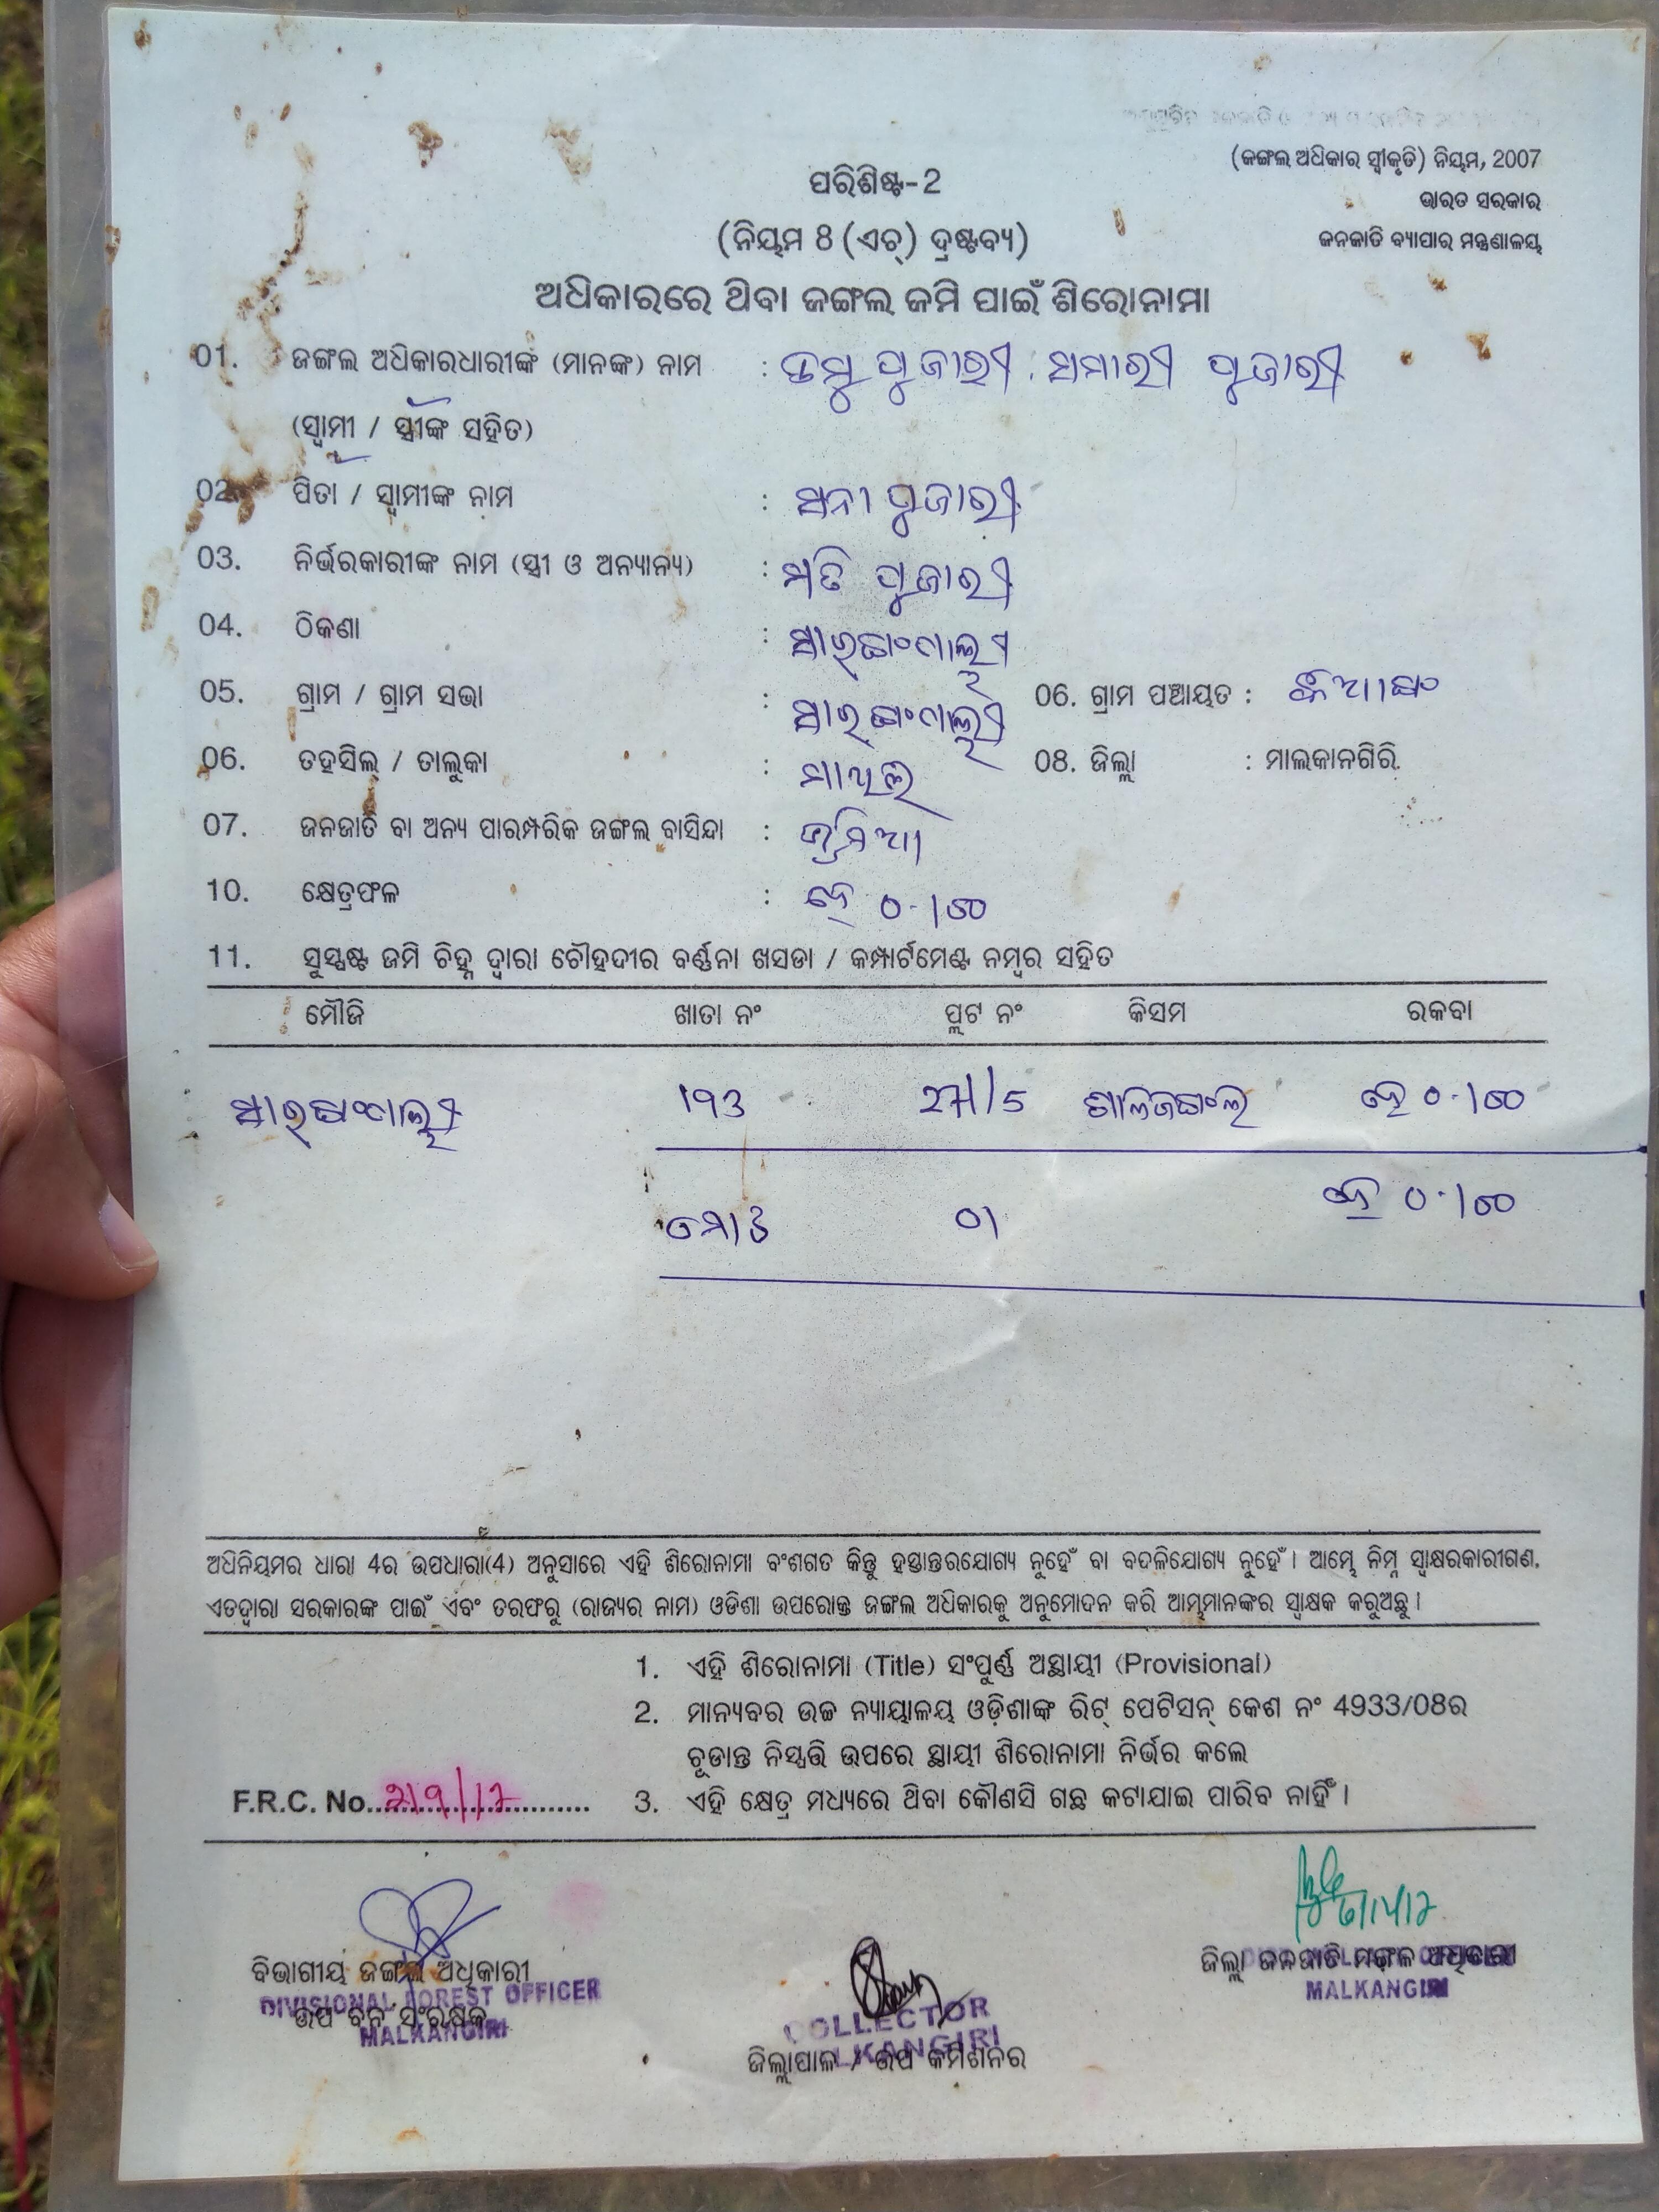 (ଜଙ୍ଗଲ ଅଧିକାର ସ୍ୱୀକୃତି) ନିୟମ, 2007
ପରିଶିଷ୍ଟ-2
ଭାରତ ସରକାର
(ନିୟମ 8 (ଏଚ୍) ଦ୍ରଷ୍ଟବ୍ୟ)
ଜନଜାତି ବ୍ୟାପାର ମନ୍ତ୍ରଣାଳୟ
ଅଧିକାରରେ ଥିବା ଜଙ୍ଗଲ ଜମି ପାଇଁ ଶିରୋନାମା
01. ଜଙ୍ଗଲ ଅଧିକାରଧାରୀଙ୍କ (ମାନଙ୍କ) ନାମ : ପୁଜାରୀ ସମାରୀ ପୁଜାରୀ
(ସ୍ୱାମୀ / ସ୍ତ୍ରୀଙ୍କ ସହିତ)
02. ପିତା / ସ୍ୱାମୀଙ୍କ ନାମ : ସନା ପୁଜାରୀ
03. ନିର୍ଭରକାରୀଙ୍କ ନାମ (ସ୍ତ୍ରୀ ଓ ଅନ୍ୟାନ୍ୟ) : ମତି ପୁଜାରୀ
04. ଠିକଣା :
05. ଗ୍ରାମ / ଗ୍ରାମ ସଭା : 06. ଗ୍ରାମ ପଞ୍ଚାୟତ :
06. ତହସିଲ୍ / ତାଲୁକା : 08. ଜିଲ୍ଲା : ମାଲକାନଗିରି
07. ଜନଜାତି ବା ଅନ୍ୟ ପାରମ୍ପରିକ ଜଙ୍ଗଲ ବାସିନ୍ଦା : ଭୂମିଆ
10. କ୍ଷେତ୍ରଫଳ : ହେ ୦.୧୬୦
11. ସୁସ୍ପଷ୍ଟ ଜମି ଚିହ୍ନ ଦ୍ୱାରା ଚୌହଦୀର ବର୍ଣ୍ଣନା ଖସଡା / କମ୍ପାର୍ଟମେଣ୍ଟ ନମ୍ବର ସହିତ
ମୌଜି ଖାତା ନଂ ପ୍ଲଟ ନଂ କିସମ ରକବା
୧୨୩ ହେ ୦.୧୬୦
ମୋଟ ୦୧ ହେ ୦.୧୬୦
ଅଧିନିୟମର ଧାରା 4ର ଉପଧାରା(4) ଅନୁସାରେ ଏହି ଶିରୋନାମା ବଂଶଗତ କିନ୍ତୁ ହସ୍ତାନ୍ତରଯୋଗ୍ୟ ନୁହେଁ ବା ବଦଳିଯୋଗ୍ୟ ନୁହେଁ । ଆମ୍ଭେ ନିମ୍ନ ସ୍ୱାକ୍ଷରକାରୀଗଣ,
ଏତଦ୍ୱାରା ସରକାରଙ୍କ ପାଇଁ ଏବଂ ତରଫରୁ (ରାଜ୍ୟର ନାମ) ଓଡିଶା ଉପରୋକ୍ତ ଜଙ୍ଗଲ ଅଧିକାରକୁ ଅନୁମୋଦନ କରି ଆମ୍ଭମାନଙ୍କର ସ୍ୱାକ୍ଷକ କରୁଅଛୁ ।
1. ଏହି ଶିରୋନାମା (Title) ସଂପୂର୍ଣ୍ଣ ଅସ୍ଥାୟୀ (Provisional)
2. ମାନ୍ୟବର ଉଚ୍ଚ ନ୍ୟାୟାଳୟ ଓଡ଼ିଶାଙ୍କ ରିଟ୍ ପେଟିସନ୍ କେଶ ନଂ 4933/08ର
ଚୂଡାନ୍ତ ନିସ୍ପତ୍ତି ଉପରେ ସ୍ଥାୟୀ ଶିରୋନାମା ନିର୍ଭର କଲେ
F.R.C. No. 3. ଏହି କ୍ଷେତ୍ର ମଧ୍ୟରେ ଥିବା କୌଣସି ଗଛ କଟାଯାଇ ପାରିବ ନାହିଁ ।
ବିଭାଗୀୟ ଜଙ୍ଗଲ ଅଧିକାରୀ
ଜିଲ୍ଲା ଜନଜାତି ମଙ୍ଗଳ ଅଧିକାରୀ
DIVISIONAL FOREST OFFICER
ଉପ ବନ ସଂରକ୍ଷକ
MALKANGIRI
MALKANGIRI
COLLECTOR
MALKANGIRI
ଜିଲ୍ଲାପାଳ / ଉପ କମିଶନର